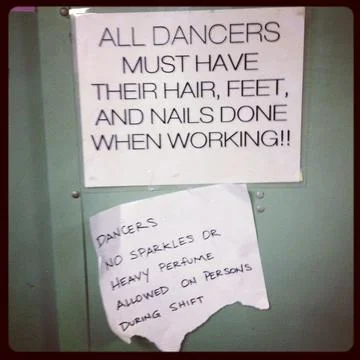 ALL DANCERS
MUST HAVE
THEIR HAIR, FEET,
AND NAILS DONE
WHEN WORKING!!
DANCERS
NO SPARKLES OR
HEAVY PERFUME
ALLOWED ON PERSONS
DURING SHIFT